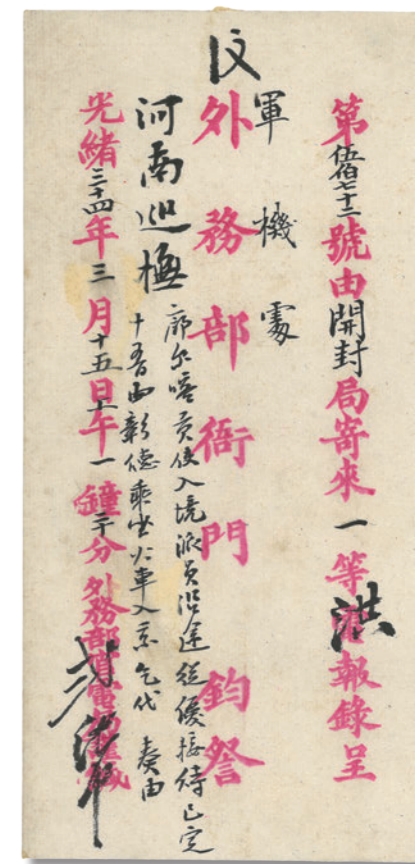 第伍佰七十二號由開封局寄來一等洪報錄呈
軍機處
外務部衙門 鈞詧
河南巡撫
廓尔喀貢使入境派員沿途從優接待已定
十五日由彰德乘坐火車入京乞代 奏由
光緒三十四年三月十五日上午一鐘二十分外務部